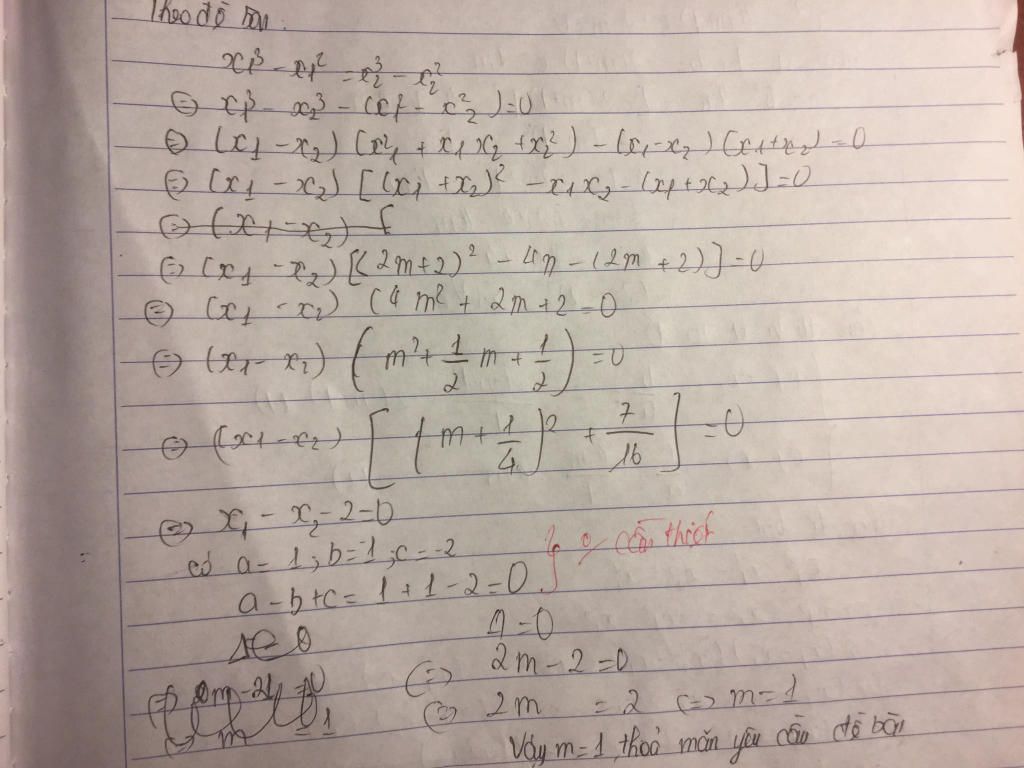 Theo đề bài.
x₁³ - x₁² = x₂³ - x₂²
⇔ x₁³ - x₂³ - (x₁² - x₂²) = 0
⇔ (x₁ - x₂) (x₁² + x₁x₂ + x₂²) - (x₁-x₂) (x₁+x₂) = 0
⇔ (x₁ - x₂) [(x₁ + x₂)² - x₁x₂ - (x₁+x₂)] = 0
⇔ (x₁ - x₂) [
⇔ (x₁ - x₂) [(2m+2)² - 4m - (2m+2)] = 0
⇔ (x₁ - x₂) (4m² + 2m + 2 = 0
⇔ (x₁ - x₂) (m² + 1/2 m + 1/2) = 0
⇔ (x₁ - x₂) [(m + 1/4)² + 7/16] = 0
⇔ x₁ - x₂ - 2 = 0
có a = 1 ; b = -1 ; c = -2 cần thiết
a - b + c = 1 + 1 - 2 = 0
Δ = 0
⇔ 2m - 2 = 0
⇔ 2m = 2 ⇔ m = 1
Vậy m = 1 thoả mãn yêu cầu đề bài